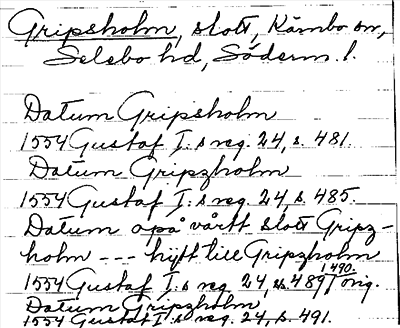 Gripsholm, slott, Kärnbo sn,
Selebo hd, Söderm. l.
Datum Gripsholm
1554 Gustaf I:s reg. 24, s. 481.
Datum Gripzholm
1554 Gustaf I:s reg. 24, s. 485.
Datum opå vårtt slott Gripz-
holm --- hijtt till Gripzholm
1554 Gustaf I:s reg. 24, s. 489, 490. orig.
Datum Gripzholm
1554 Gustaf I:s reg. 24, s. 491.